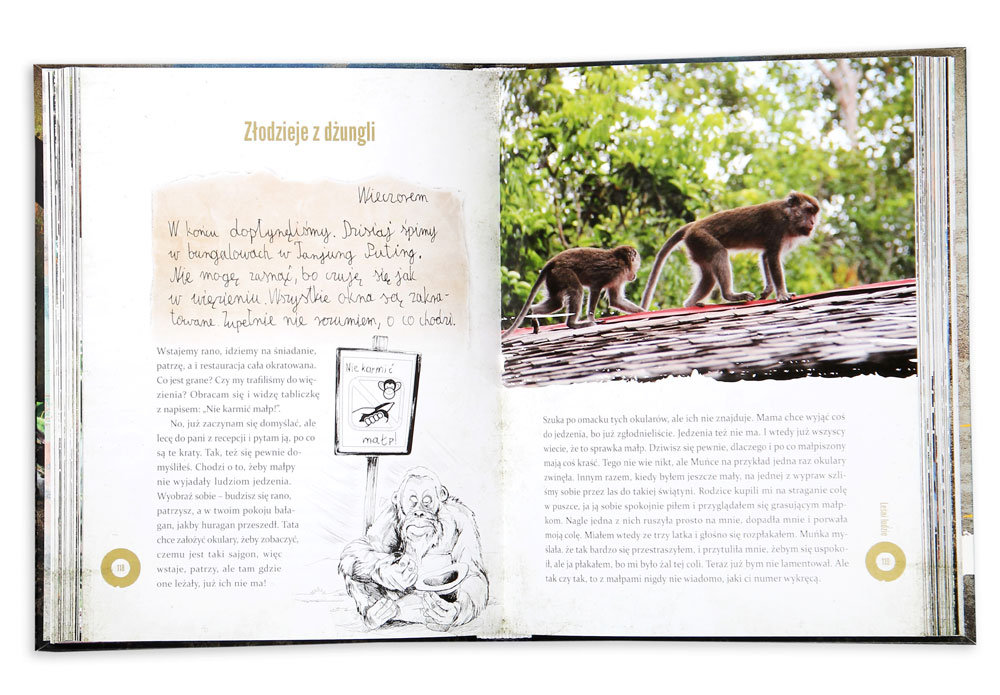 Złodzieje z dżungli
Wieczorem
W końcu dopłynęliśmy. Dzisiaj śpimy
w bungalowach w Tanjung Puting.
Nie mogę zasnąć, bo czuję się jak
w więzieniu. Wszystkie okna są zakra-
towane. Zupełnie nie rozumiem, o co chodzi.
Wstajemy rano, idziemy na śniadanie,
patrzę, a i restauracja cała okratowana.
Co jest grane? Czy my trafiliśmy do wię-
zienia? Obracam się i widzę tabliczkę
z napisem: „Nie karmić małp!”.
No, już zaczynam się domyślać, ale
lecę do pani z recepcji i pytam ją, po co
są te kraty. Tak, też się pewnie do-
myśliłeś. Chodzi o to, żeby małpy
nie wyjadały ludziom jedzenia.
Wyobraź sobie – budzisz się rano,
patrzysz, a w twoim pokoju bała-
gan, jakby huragan przeszedł. Tata
chce założyć okulary, żeby zobaczyć,
czemu jest taki sajgon, więc
wstaje, patrzy, ale tam gdzie
one leżały, już ich nie ma!
Nie karmić
małp!
118
Szuka po omacku tych okularów, ale ich nie znajduje. Mama chce wyjąć coś
do jedzenia, bo już zgłodnieliście. Jedzenia też nie ma. I wtedy już wszyscy
wiecie, że to sprawka małp. Dziwisz się pewnie, dlaczego i po co małpiszony
mają coś kraść. Tego nie wie nikt, ale Muńce na przykład jedna raz okulary
zwinęła. Innym razem, kiedy byłem jeszcze mały, na jednej z wypraw szli-
śmy sobie przez las do takiej świątyni. Rodzice kupili mi na straganie colę
w puszce, ja ją sobie spokojnie piłem i przyglądałem się grasującym małp-
kom. Nagle jedna z nich ruszyła prosto na mnie, dopadła mnie i porwała
moją colę. Miałem wtedy ze trzy latka i głośno się rozpłakałem. Muńka my-
ślała, że tak bardzo się przestraszyłem, i przytuliła mnie, żebym się uspoko-
ił, ale ja płakałem, bo mi było żal tej coli. Teraz już bym nie lamentował. Ale
tak czy tak, to z małpami nigdy nie wiadomo, jaki ci numer wykręcą.
Leśni ludzie
119